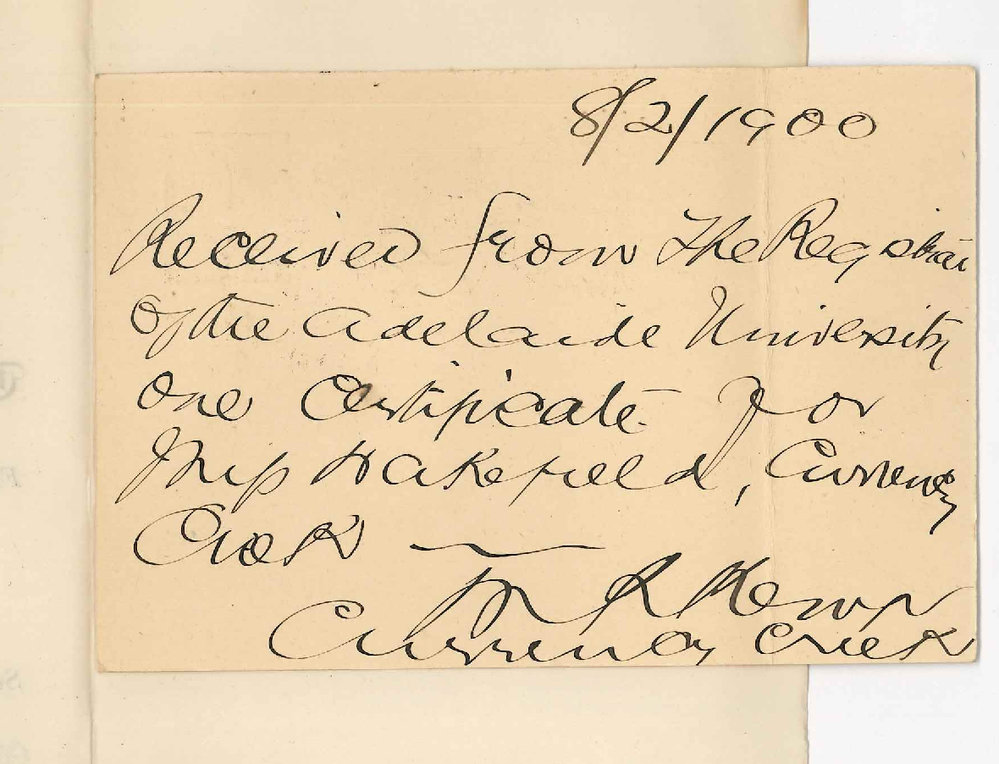 8/2/1900
Received from the Registrar
of the Adelaide University
one Certificate for
Miss Wakefield, Currency
Creek
Currency Creek